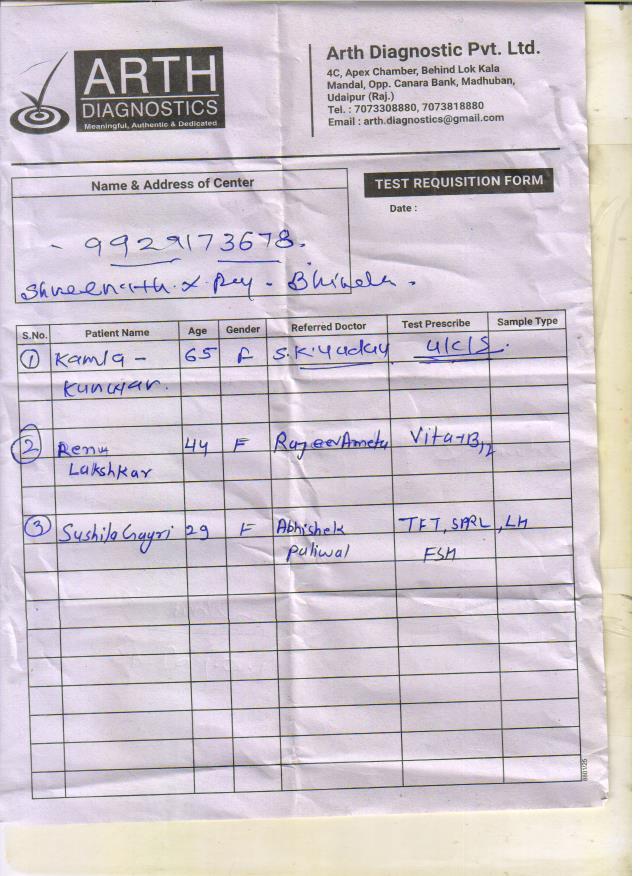 ARTH
DIAGNOSTICS
Meaningful, Authentic & Dedicated
Arth Diagnostic Pvt. Ltd.
4C, Apex Chamber, Behind Lok Kala
Mandal, Opp. Canara Bank, Madhuban,
Udaipur (Raj.)
Tel. : 7073308880, 7073818880
Email : arth.diagnostics@gmail.com
Name & Address of Center
TEST REQUISITION FORM
Date :
- 9929173678.
Shreenath X Ray -
S.No. Patient Name Age Gender Referred Doctor Test Prescribe Sample Type
1 Kamla - 65 F S.K. Yadav U/C/S.
Kunwar.
2 Renu 44 F Rajeev Ameta Vita-B12
Lakshkar
3 Sushila Gayri 29 F Abhishek TFT, SPRL, LH
Paliwal FSH